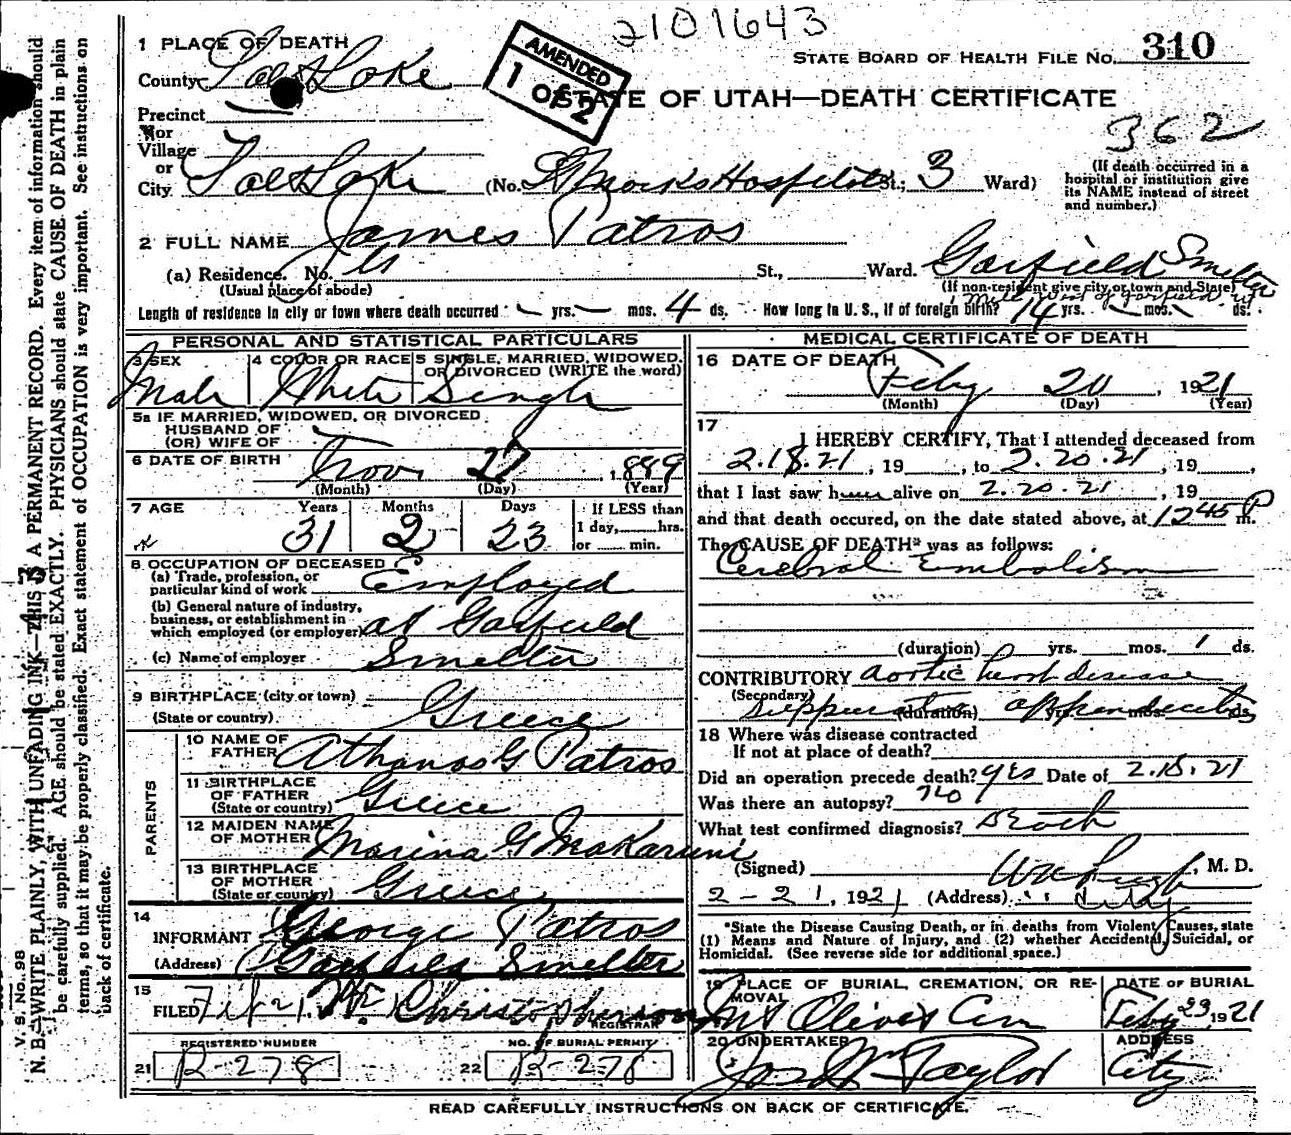 2101643
STATE BOARD OF HEALTH FILE No. 310
AMENDED
1 OF 2
STATE OF UTAH—DEATH CERTIFICATE
362
1 PLACE OF DEATH
County Salt Lake
Precinct
or
Village
or
City Salt Lake (No. St Marks Hospital St.; 3 Ward)
(If death occurred in a hospital or institution give its NAME instead of street and number.)
2 FULL NAME James Patros
(a) Residence. No. St., Ward. Garfield Smelter
(Usual place of abode) (If non-resident give city or town and State)
1 Mile West of Garfield, Ut
Length of residence in city or town where death occurred — yrs. — mos. 4 ds. How long in U. S., if of foreign birth? 14 yrs. — mos. ds.
PERSONAL AND STATISTICAL PARTICULARS
3 SEX Male
4 COLOR OR RACE White
5 SINGLE, MARRIED, WIDOWED, OR DIVORCED (WRITE the word) Single
5a IF MARRIED, WIDOWED, OR DIVORCED
HUSBAND OF
(OR) WIFE OF
6 DATE OF BIRTH Nov 27, 1889
(Month) (Day) (Year)
7 AGE Years 31 Months 2 Days 23
If LESS than
1 day, hrs.
or min.
8 OCCUPATION OF DECEASED
(a) Trade, profession, or particular kind of work Employed
(b) General nature of industry, business, or establishment in which employed (or employer) at Garfield
(c) Name of employer Smelter
9 BIRTHPLACE (city or town)
(State or country) Greece
PARENTS
10 NAME OF FATHER Athanas G Patros
11 BIRTHPLACE OF FATHER (State or country) Greece
12 MAIDEN NAME OF MOTHER Marina G Makaruni
13 BIRTHPLACE OF MOTHER (State or country) Greece
14
INFORMANT George Patros
(Address) Garfield Smelter
15
FILED Feb 21. Christopherson
REGISTRAR
REGISTERED NUMBER
21 R-278
NO. OF BURIAL PERMIT
22 R-278
MEDICAL CERTIFICATE OF DEATH
16 DATE OF DEATH
Feby 20, 1921
(Month) (Day) (Year)
17
I HEREBY CERTIFY, That I attended deceased from
2.18.21, 19 , to 2.20.21, 19 ,
that I last saw him alive on 2.20.21, 19
and that death occured, on the date stated above, at 12 45 P m.
The CAUSE OF DEATH* was as follows:
Cerebral Embolism
(duration) yrs. mos. 1 ds.
CONTRIBUTORY aortic heart disease
(Secondary) Suppurative appendicitis
(duration) yrs. mos. ds.
18 Where was disease contracted
If not at place of death?
Did an operation precede death? yes Date of 2.18.21
Was there an autopsy? no
What test confirmed diagnosis?
(Signed) , M. D.
2-21, 1921 (Address) City
*State the Disease Causing Death, or in deaths from Violent Causes, state (1) Means and Nature of Injury, and (2) whether Accidental, Suicidal, or Homicidal. (See reverse side for additional space.)
19 PLACE OF BURIAL, CREMATION, OR REMOVAL
Mt Olivet Cem
DATE OF BURIAL
Feby 23, 1921
20 UNDERTAKER
Jos Wm Taylor
ADDRESS
City
READ CAREFULLY INSTRUCTIONS ON BACK OF CERTIFICATE.
V. S. No. 98
N. B.—WRITE PLAINLY, WITH UNFADING INK—THIS IS A PERMANENT RECORD. Every item of information should
be carefully supplied. AGE should be stated EXACTLY. PHYSICIANS should state CAUSE OF DEATH in plain
terms, so that it may be properly classified. Exact statement of OCCUPATION is very important. See instructions on
back of certificate.